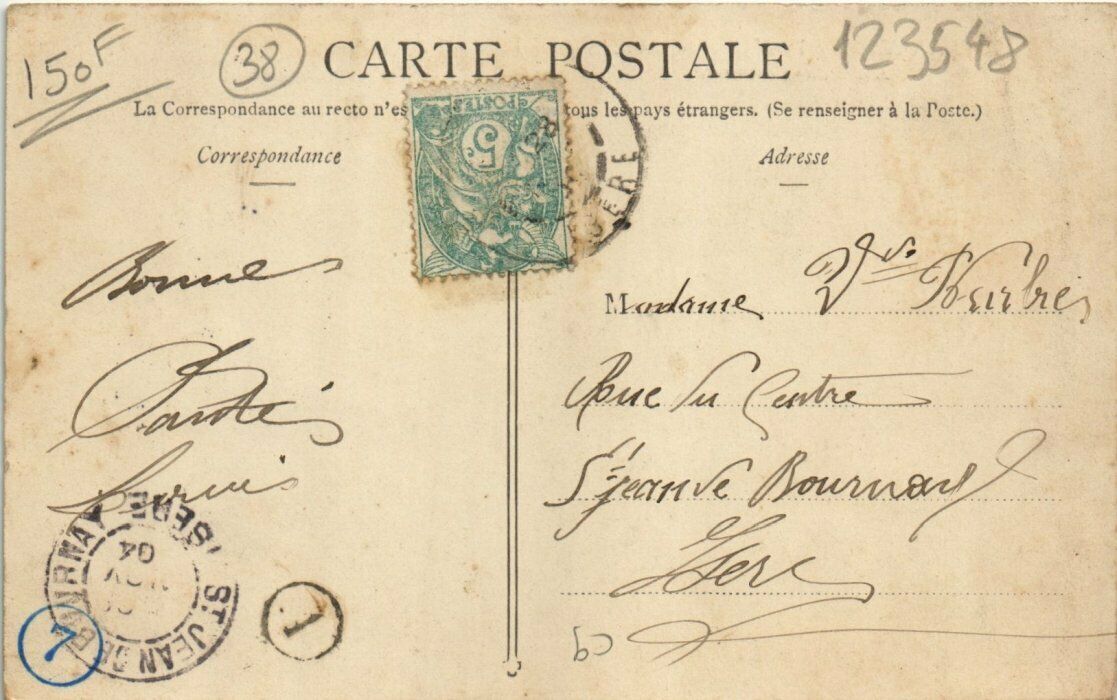 150F
38
CARTE POSTALE
123548
La Correspondance au recto n'es tous les pays étrangers. (Se renseigner à la Poste.)
Correspondance
Adresse
POSTES
5
ISÈRE
Bonne
Santé
Madame Vve
Rue du Centre
St Jean de Bournay
Isère
ST JEAN DE BOURNAY
ISÈRE
NOV
04
7
1